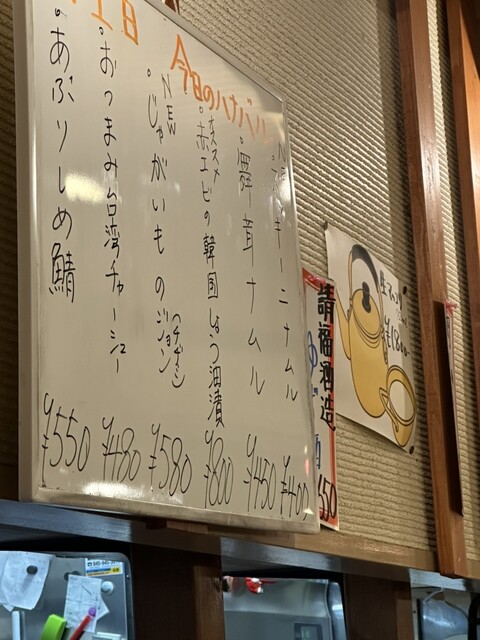 今日のハナバル
NEW
ズッキーニナムル
¥400
舞茸ナムル
¥450
オススメ
赤エビの韓国しょう油漬
¥800
NEW
じゃがいものジョン
(チヂミ)
¥580
おつまみ台湾チャーシュー
¥480
あぶりしめ鯖
¥550
請福酒造
生マッコリ
¥1800